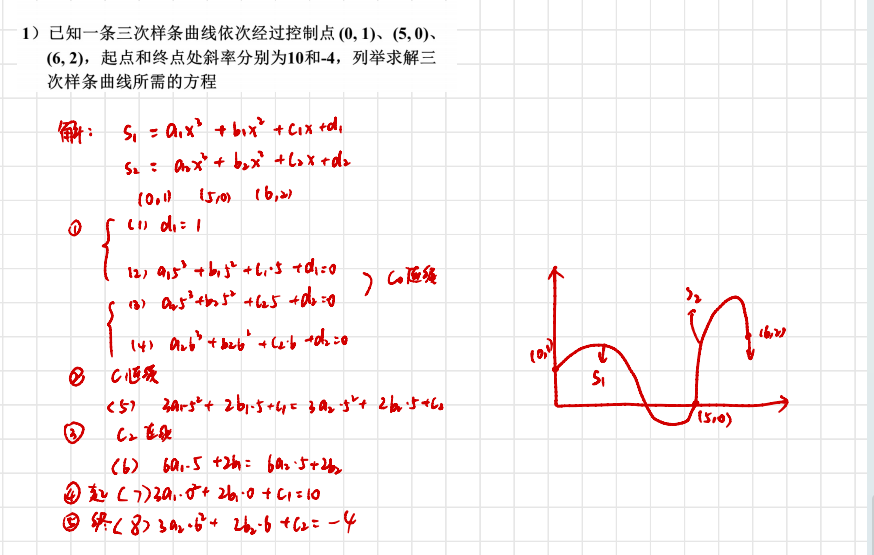 1）已知一条三次样条曲线依次经过控制点 (0, 1)、(5, 0)、
(6, 2)，起点和终点处斜率分别为10和-4，列举求解三
次样条曲线所需的方程
解： S₁ = a₁x³ + b₁x² + c₁x + d₁
S₂ = a₂x³ + b₂x² + c₂x + d₂
(0,1) (5,0) (6,2)
① (1) d₁ = 1
(2) a₁5³ + b₁5² + c₁·5 + d₁ = 0
C₀连续
(3) a₂5³ + b₂5² + c₂5 + d₂ = 0
(4) a₂6³ + b₂6² + c₂·6 + d₂ = 0
② C₁连续
(5) 3a₁·5² + 2b₁·5 + c₁ = 3a₂·5² + 2b₂·5 + c₂
③ C₂连续
(6) 6a₁·5 + 2b₁ = 6a₂·5 + 2b₂
④ 起 (7) 3a₁·0² + 2b₁·0 + c₁ = 10
⑤ 终 (8) 3a₂·6² + 2b₂·6 + c₂ = -4
S₂
(6,2)
(0,1)
S₁
(5,0)